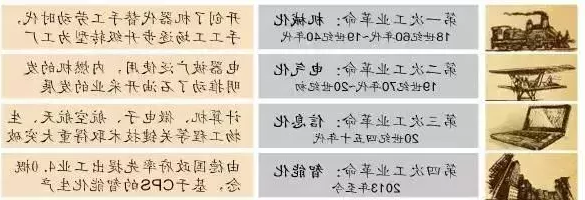 第一次工业革命：机械化
18世纪60年代~19世纪40年代
开创了机器代替手工劳动时代，
手工工场逐步升级转型为工厂
第二次工业革命：电气化
19世纪70年代~20世纪初
电器被广泛使用，内燃机的发
明推动了石油开采业的发展
第三次工业革命：信息化
20世纪四五十年代
计算机、微电子、航空航天、生
物工程等关键技术取得重大突破
第四次工业革命：智能化
2013年至今
由德国政府率先提出工业4.0概
念，基于CPS的智能化生产